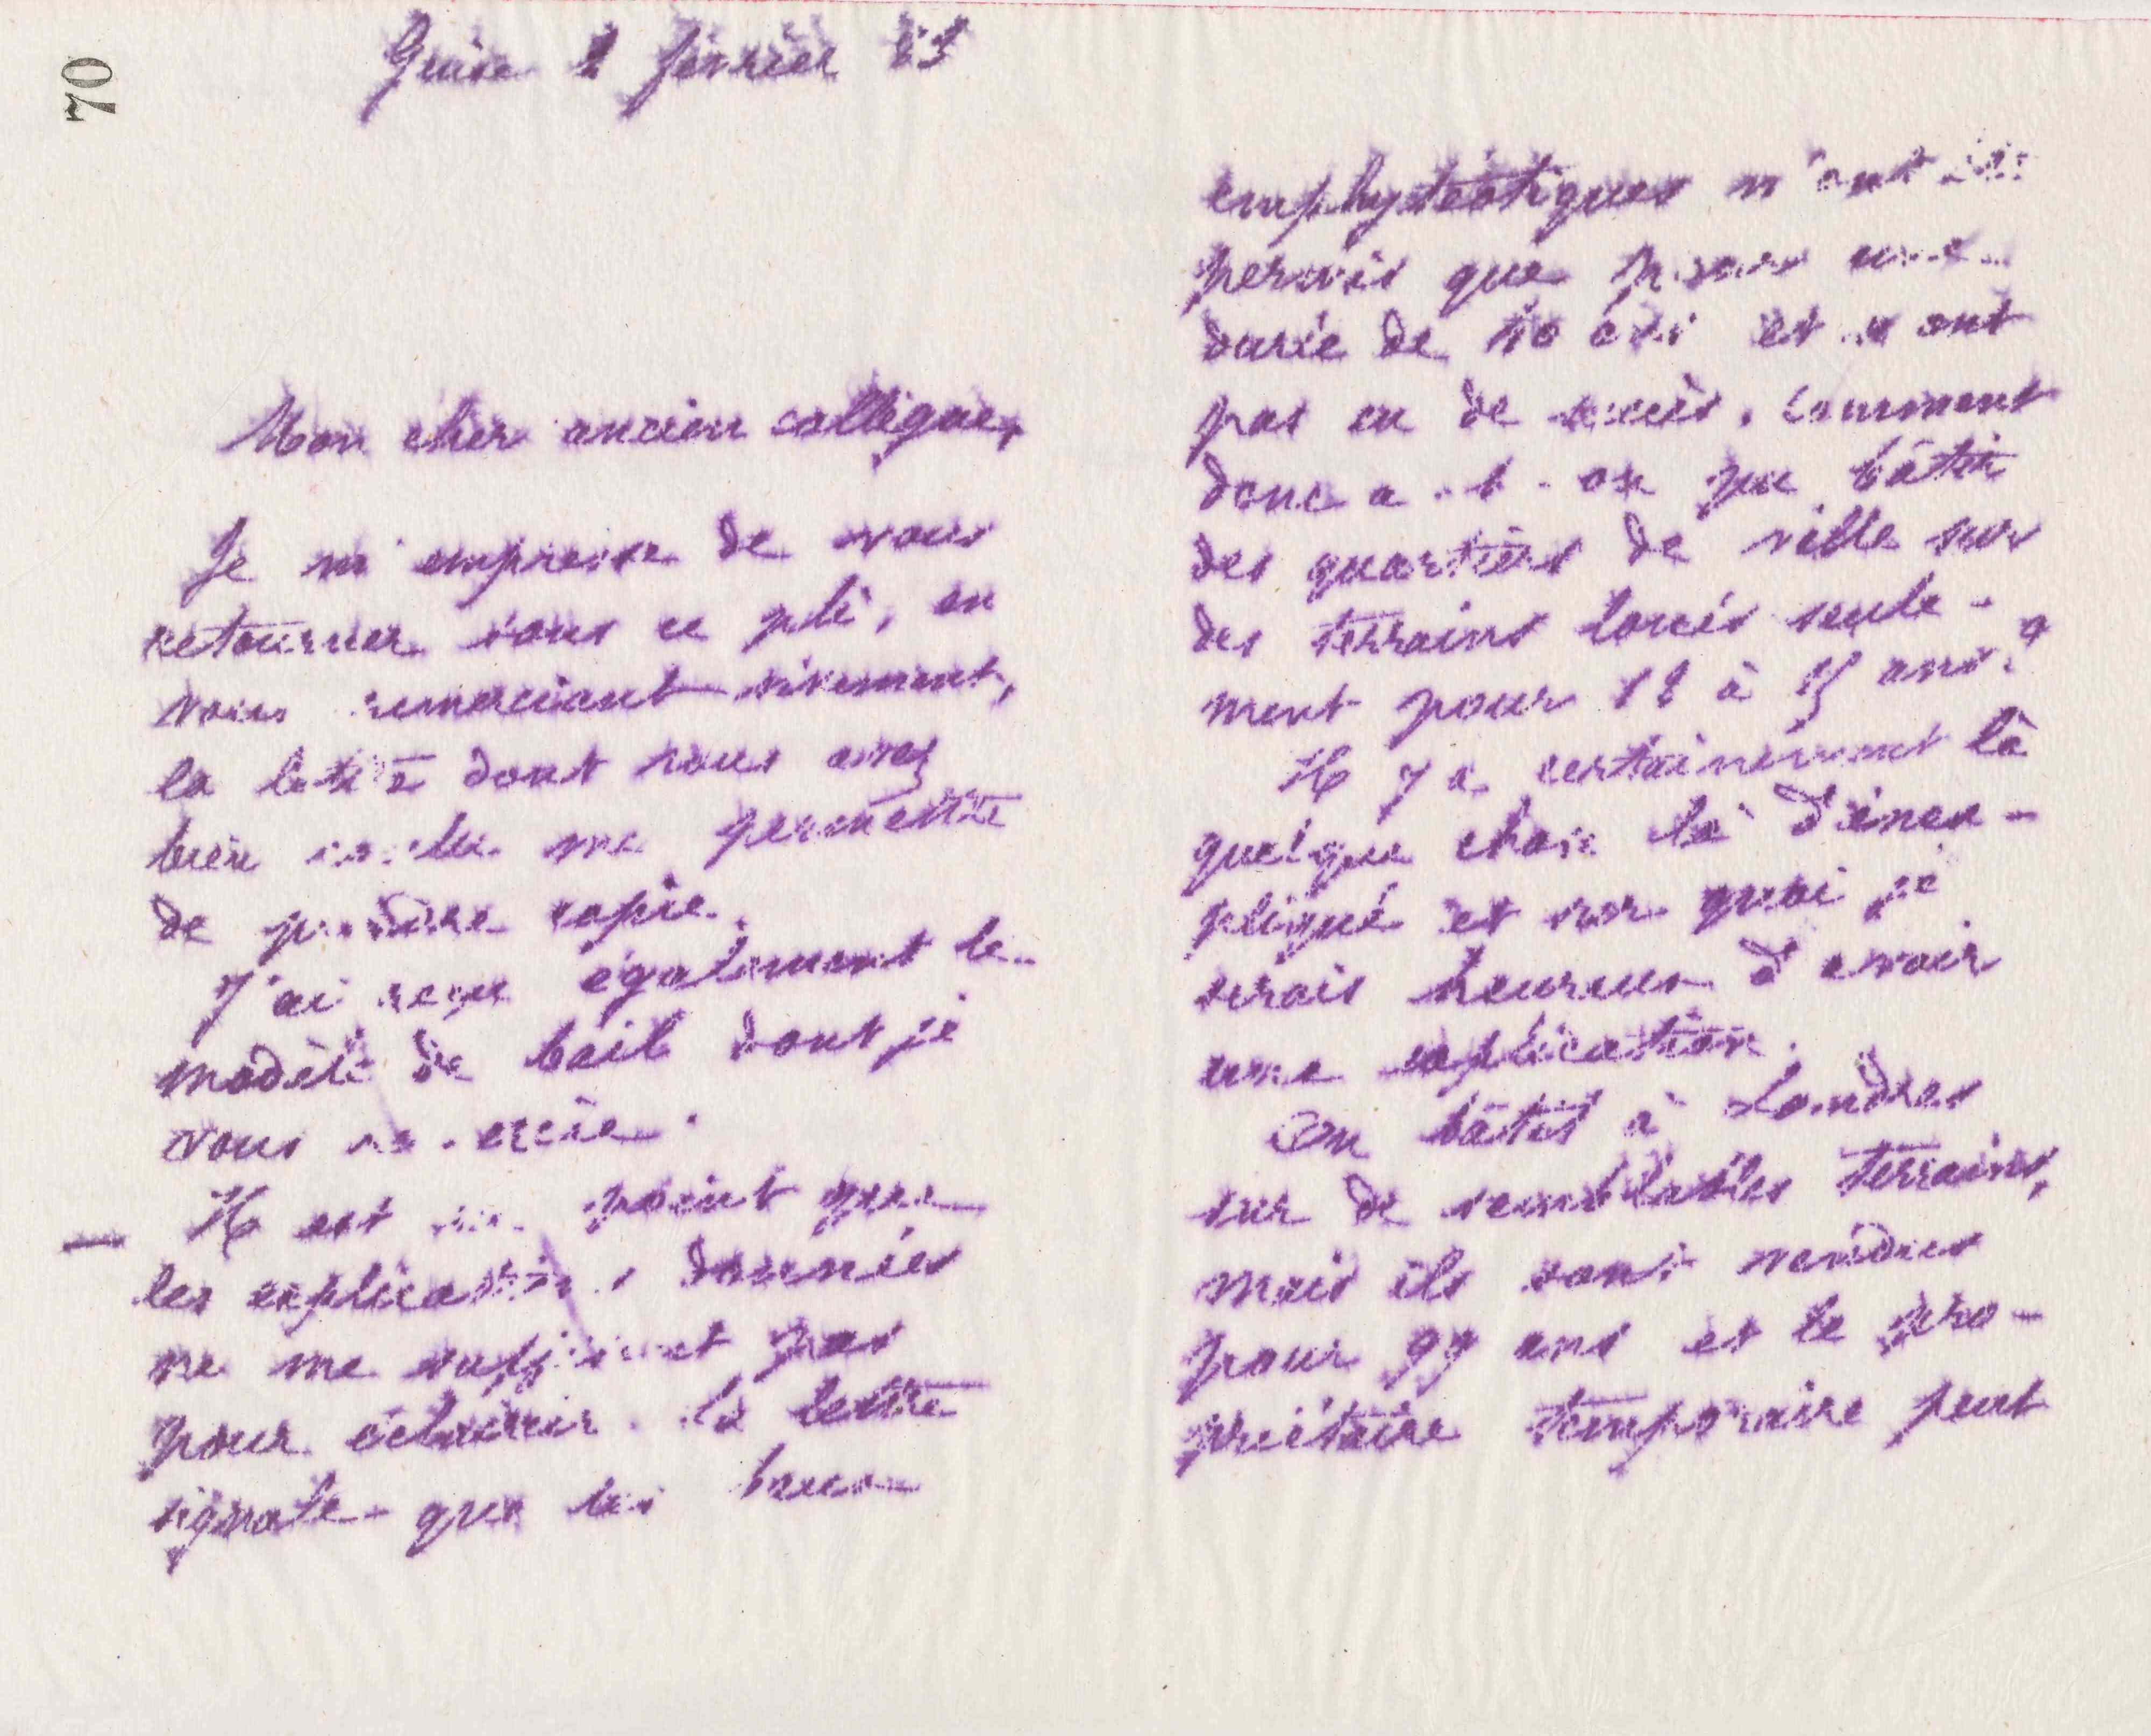 70
Guise 2 février 83
Mon cher ancien collègue,
Je m'empresse de vous
retourner sous ce pli, en
vous remerciant vivement,
la lettre dont vous avez
bien voulu me permettre
de prendre copie.
J'ai reçu également le
modèle de bail dont je
vous remercie.
Il est un point que
les explications données
ne me suffisent pas
pour éclaircir. La lettre
signale que les baux
emphytéotiques n'ont été
permis que pour une
durée de ans et n'ont
pas eu de succès, comment
donc a-t-on pu bâtir
des quartiers de ville sur
des terrains loués seule-
ment pour 12 à 15 ans ?
Il y a certainement là
quelque chose là d'inex-
pliqué et sur quoi je
serais heureux d'avoir
une explication.
On bâtit à Londres
sur de semblables terrains,
mais ils sont vendus
pour 99 ans et le pro-
priétaire temporaire peut